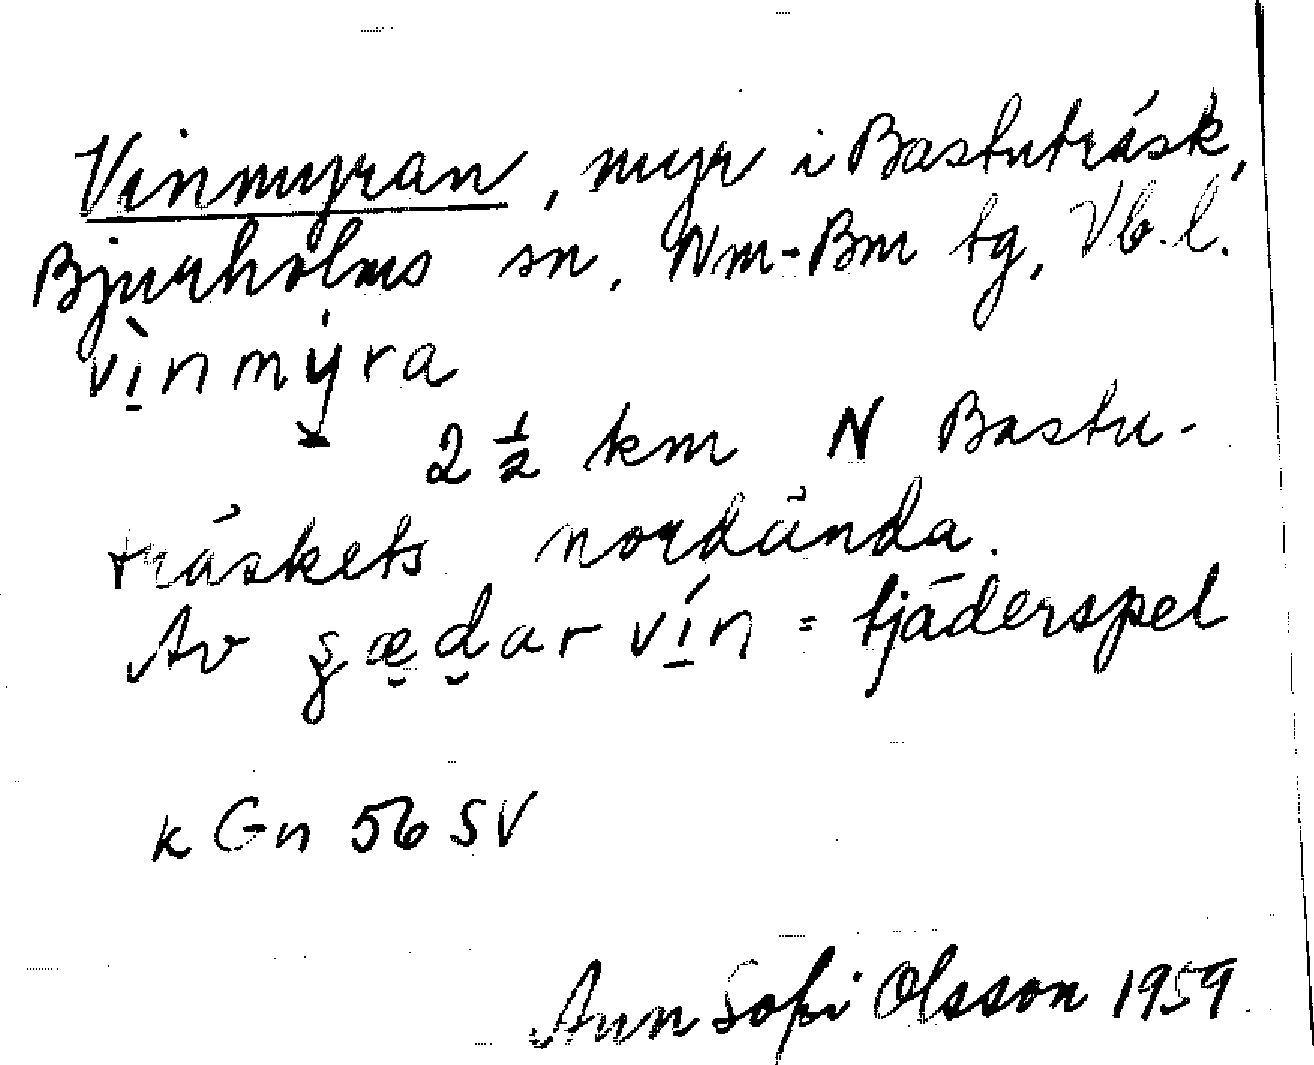 Vinmyran, myr i Bastuträsk,
Bjurholms sn, Nm-Bm tg, Vb.l.
vìn mýra
2 ½ km N Bastu-
träskets nordända.
Av vín = tjäderspel
k Gn 56 SV
Ann Sofi Olsson 1959